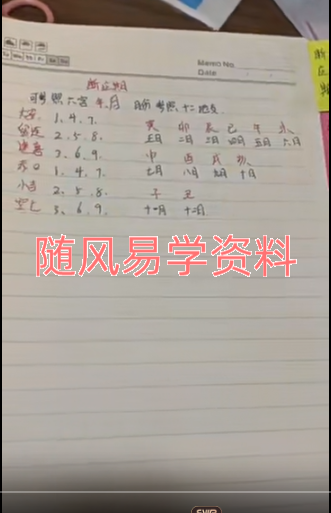 Memo No.
Date
断应期
可参照六宫 年.月 月份参照.十二地支
大安 1、4、7、
留连 2、5、8、
速喜 3、6、9、
赤口 1、4、7、
小吉 2、5、8、
空亡 3、6、9、
寅 卯 辰 巳 午 未
正月 二月 三月 四月 五月 六月
申 酉 戌 亥
七月 八月 九月 十月
子 丑
十一月 十二月
断应期
随风易学资料